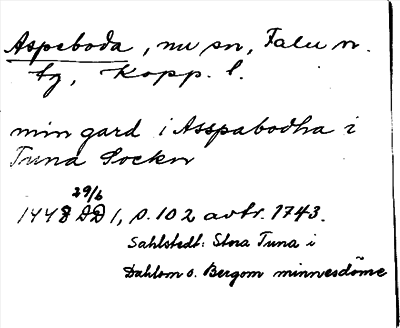 Aspeboda, nu sn, Falu n.
fg, Kopp. l.
min gard i Asspabodha i
Tuna Sockn
29/6
1448 DD 1, s. 102 avtr. 1743.
Sahlstedt: Stora Tuna i
Dahlom o. Bergom minnesdöme